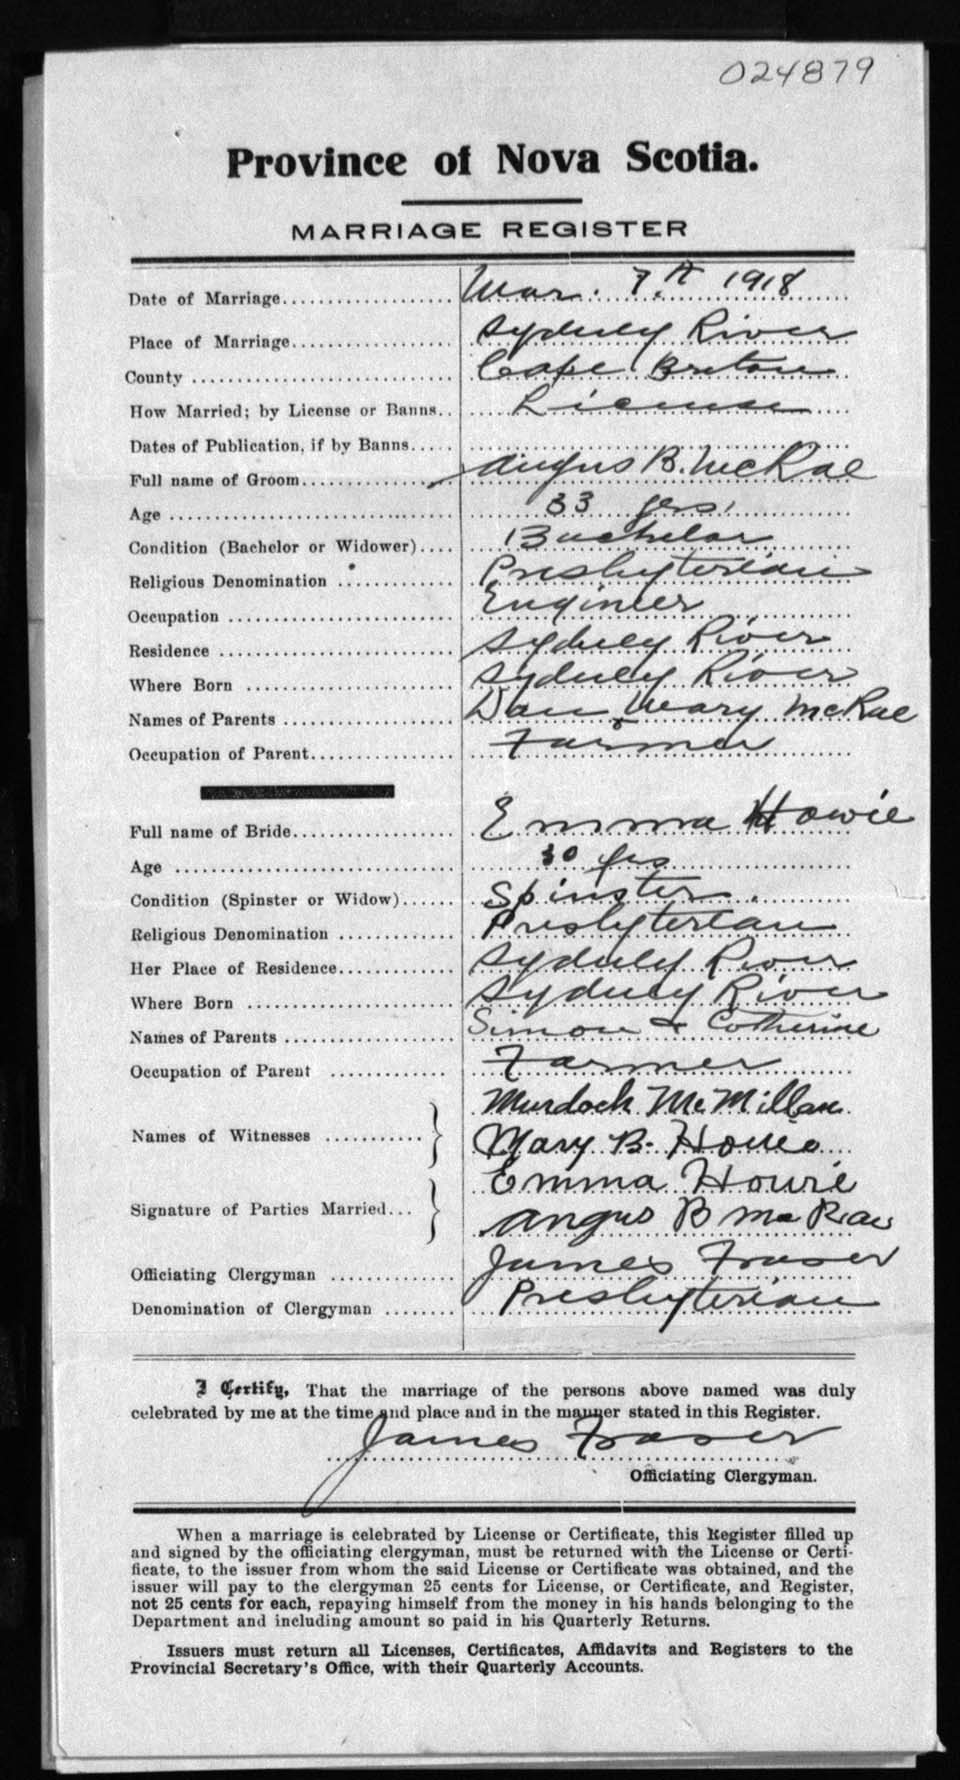 024879
Province of Nova Scotia.
MARRIAGE REGISTER
Date of Marriage.................. Mar. 7th 1918
Place of Marriage.................. Sydney River
County .................. Cape Breton
How Married; by License or Banns.. License
Dates of Publication, if by Banns.....
Full name of Groom.................. Angus B. McRae
Age .................. 33 yrs.
Condition (Bachelor or Widower).... Bachelor
Religious Denomination ............ Presbyterian
Occupation .................. Engineer
Residence .................. Sydney River
Where Born .................. Sydney River
Names of Parents .................. Dan & Mary McRae
Occupation of Parent.................. Farmer
Full name of Bride.................. Emma Howie
Age .................. 30 yrs
Condition (Spinster or Widow)...... Spinster.
Religious Denomination ............ Presbyterian
Her Place of Residence............. Sydney River
Where Born .................. Sydney River
Names of Parents .................. Simon & Catherine
Occupation of Parent ............. Farmer
Names of Witnesses ........... } Murdock McMillan
Mary B. Howie
Signature of Parties Married... } Emma Howie
Angus B McRae
Officiating Clergyman ............. James Fraser
Denomination of Clergyman ........ Presbyterian
I Certify, That the marriage of the persons above named was duly
celebrated by me at the time and place and in the manner stated in this Register.
James Fraser
Officiating Clergyman.
When a marriage is celebrated by License or Certificate, this Register filled up
and signed by the officiating clergyman, must be returned with the License or Certi-
ficate, to the issuer from whom the said License or Certificate was obtained, and the
issuer will pay to the clergyman 25 cents for License, or Certificate, and Register,
not 25 cents for each, repaying himself from the money in his hands belonging to the
Department and including amount so paid in his Quarterly Returns.
Issuers must return all Licenses, Certificates, Affidavits and Registers to the
Provincial Secretary's Office, with their Quarterly Accounts.